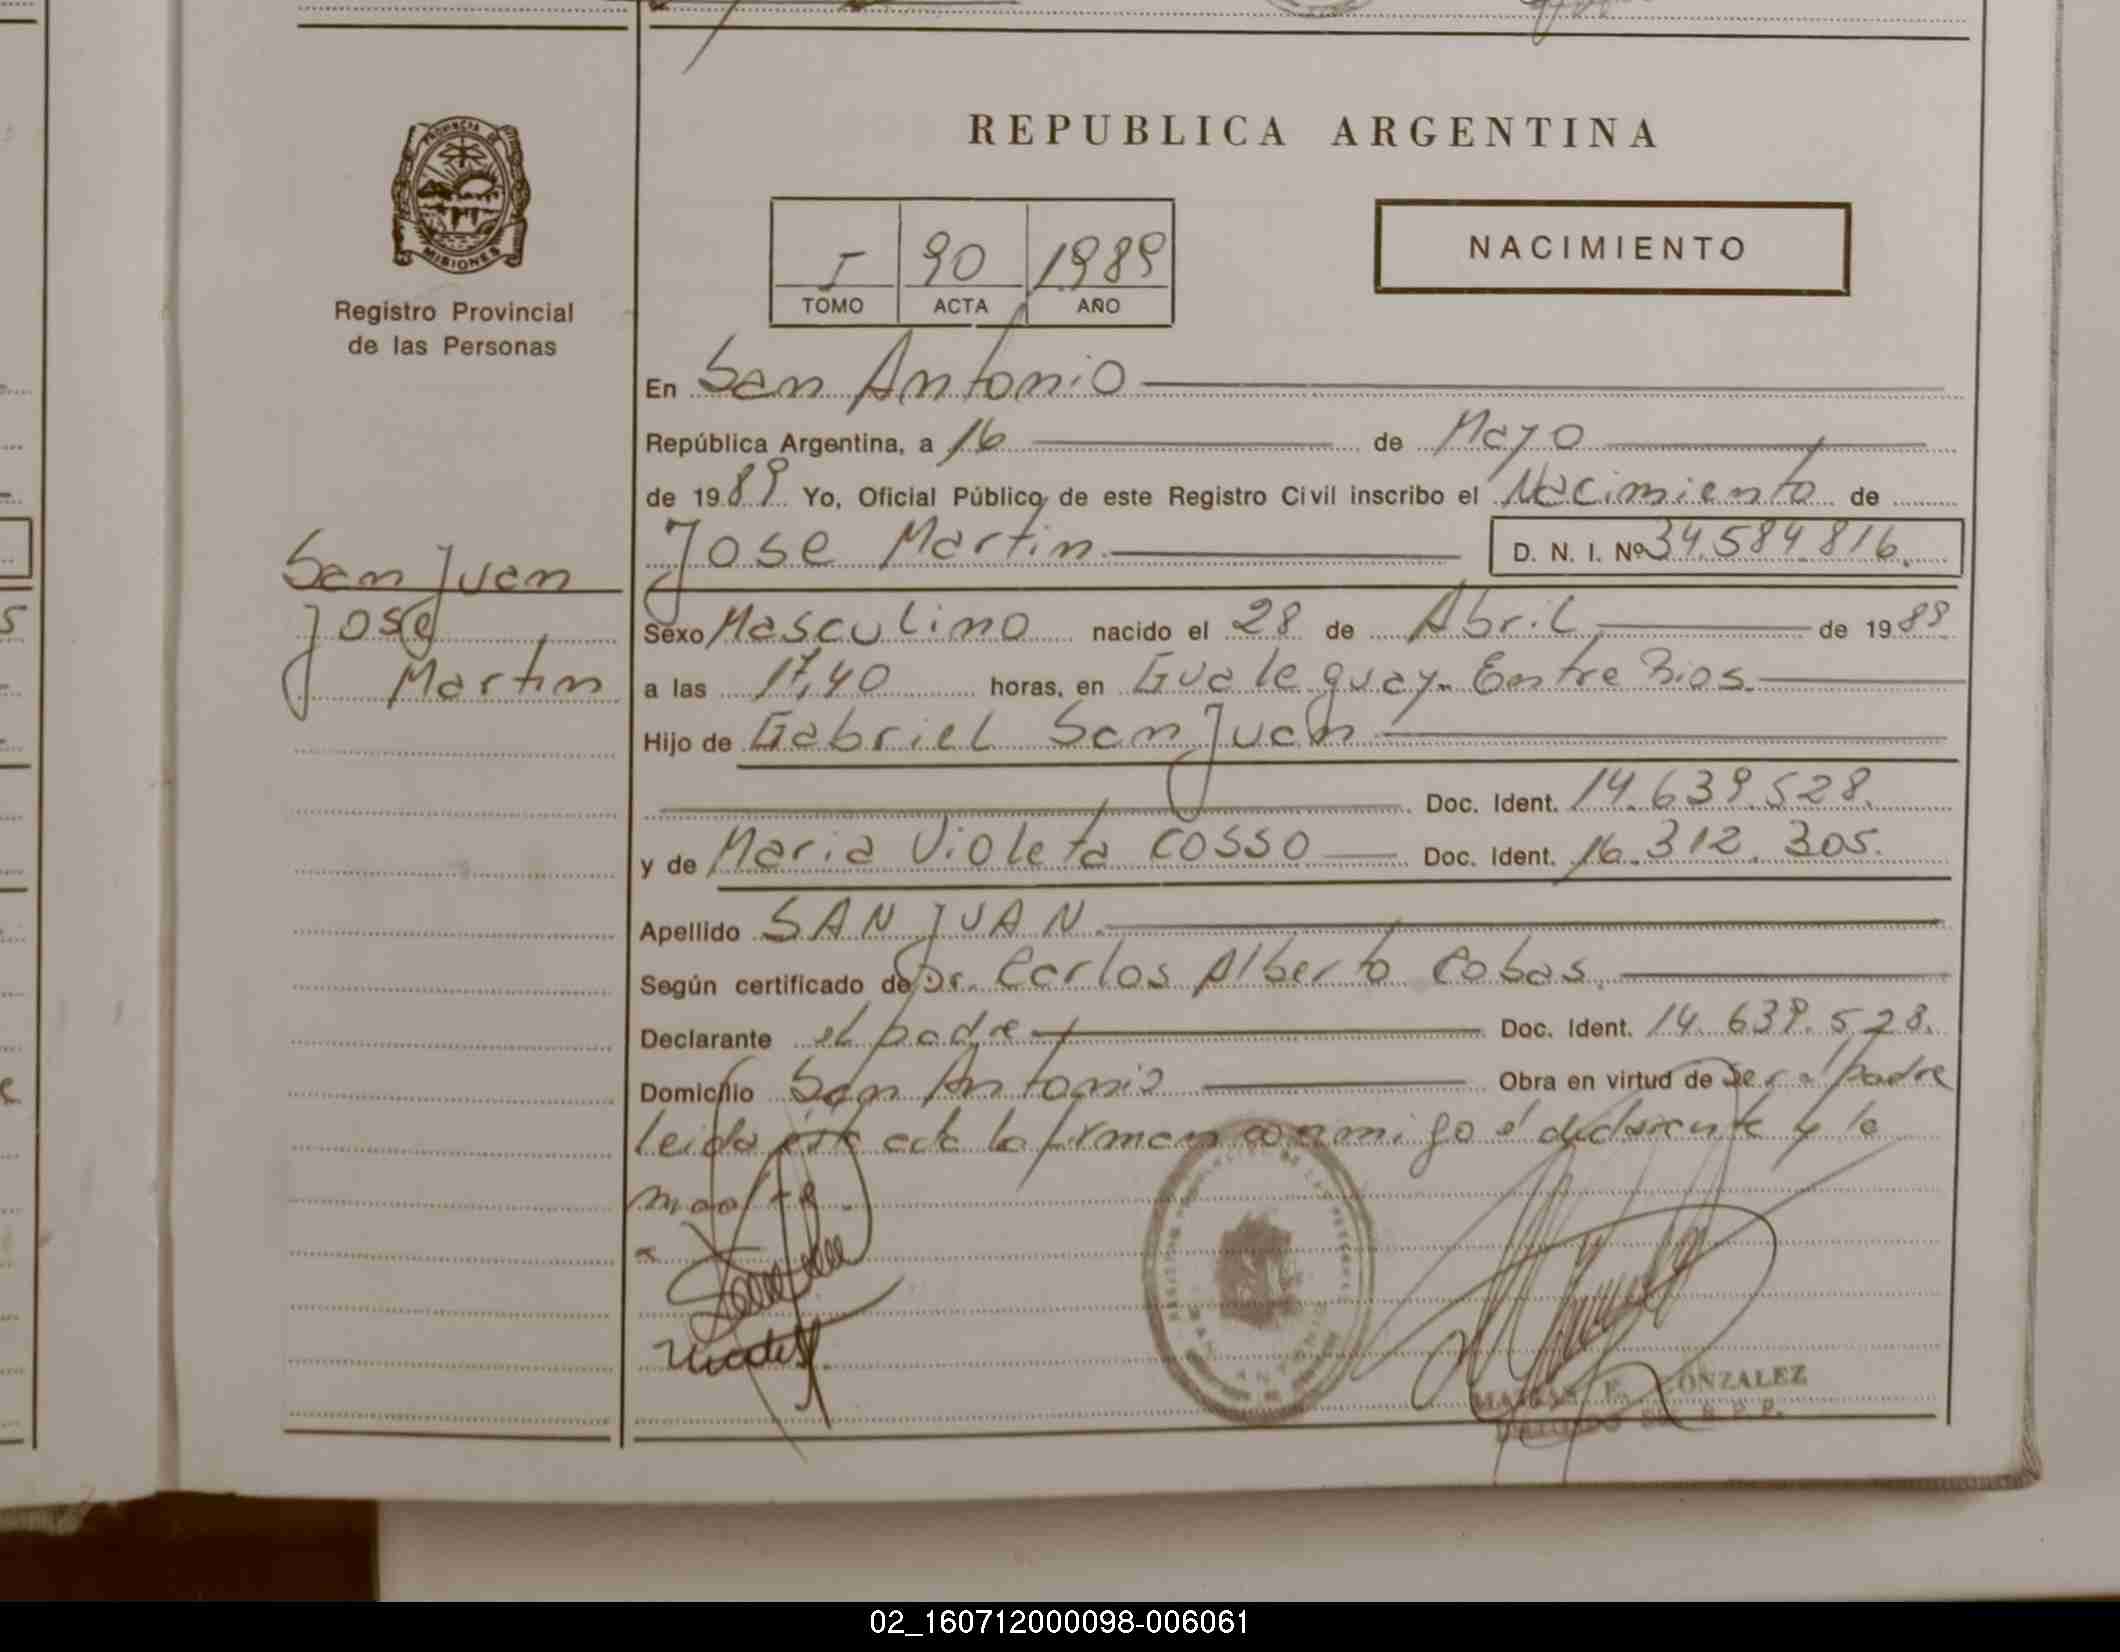 REPUBLICA ARGENTINA
PROVINCIA DE
MISIONES
Registro Provincial
de las Personas
I 90 1989
TOMO ACTA AÑO
NACIMIENTO
En San Antonio
República Argentina, a 16 de Mayo
de 1989 Yo, Oficial Público de este Registro Civil inscribo el Nacimiento de
San Juan
Jose
Martin
Jose Martin D. N. I. Nº 34.584.816.
Sexo Masculino nacido el 28 de Abril de 1989
a las 17,40 horas, en Gualeguay. Entre Rios.
Hijo de Gabriel San Juan
Doc. Ident. 14.639.528.
y de Maria Violeta COSSO Doc. Ident. 16.312.305.
Apellido SAN JUAN.
Según certificado de Dr. Carlos Alberto Cobas.
Declarante el padre Doc. Ident. 14.639.528.
Domicilio San Antonio Obra en virtud de ser el padre
leida esta acta la firman conmigo el declarante y la
madre.
GONZALEZ
R. P. P.
02_160712000098-006061